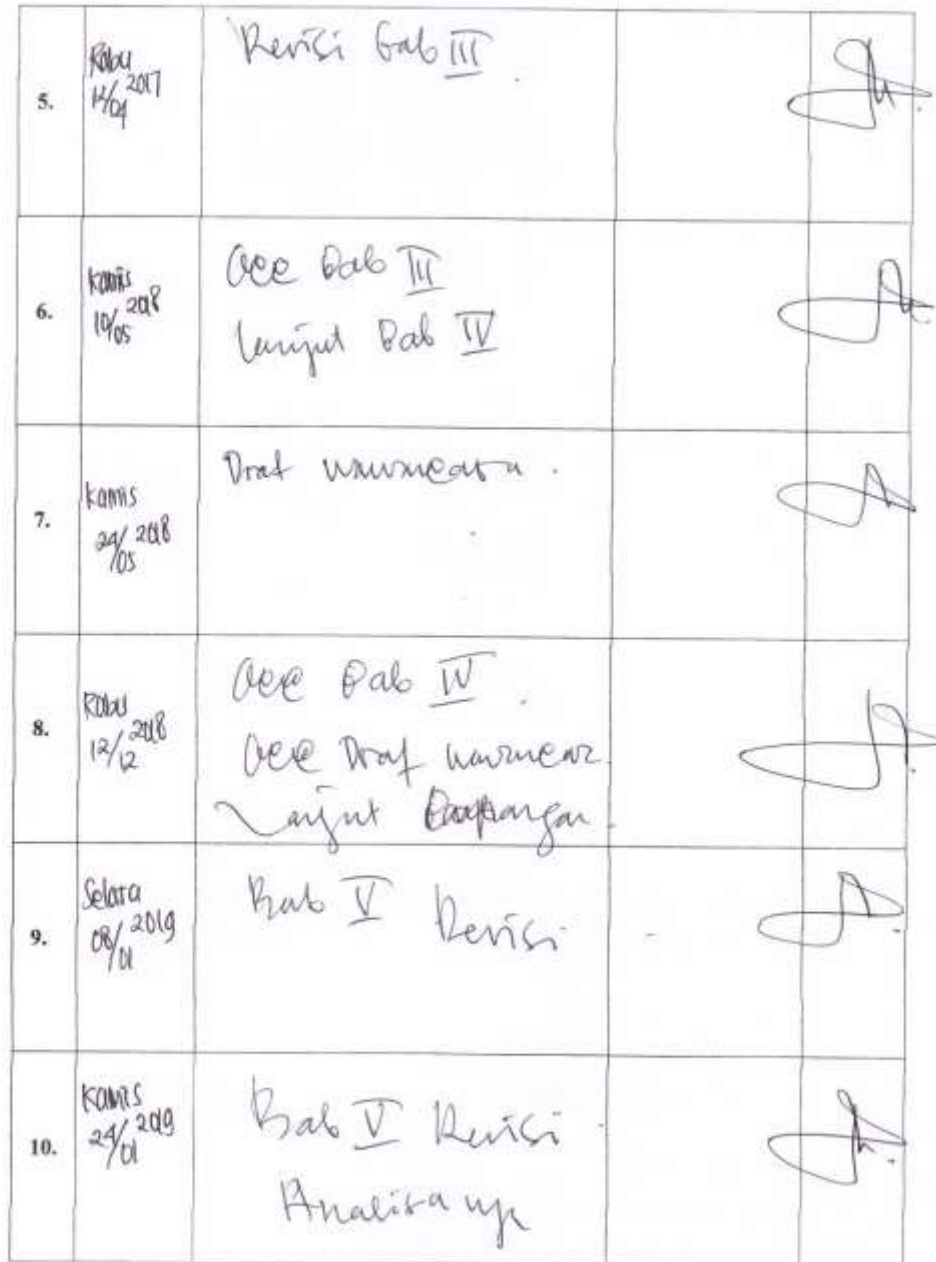 5.
Rabu
12/04 2017
Revisi Bab III
6.
Kamis
10/05 2018
Acc Bab III
lanjut Bab IV
7.
Kamis
24/05 2018
Draf wawancara.
8.
Rabu
12/12 2018
Acc Bab IV.
Acc Draf wawancara
Lanjut Lapangan.
9.
Selasa
08/01 2019
Bab V Revisi
10.
Kamis
24/01 2019
Bab V Revisi
Analisanya